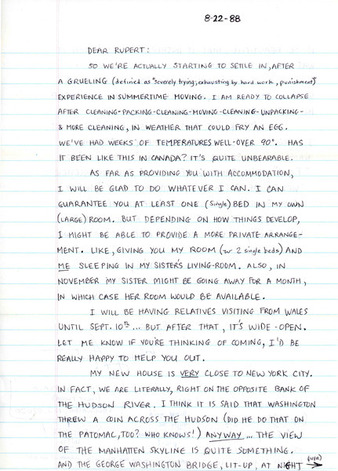 8-22-88
DEAR RUPERT:
SO WE'RE ACTUALLY STARTING TO SETTLE IN, AFTER
A GRUELING (defined as "severely trying; exhausting by hard work, punishment")
EXPERIENCE IN SUMMERTIME MOVING. I AM READY TO COLLAPSE
AFTER CLEANING-PACKING-CLEANING-MOVING-CLEANING-UNPACKING-
& MORE CLEANING, IN WEATHER THAT COULD FRY AN EGG.
WE'VE HAD WEEKS OF TEMPERATURES WELL-OVER 90°. HAS
IT BEEN LIKE THIS IN CANADA? IT'S QUITE UNBEARABLE.
AS FAR AS PROVIDING YOU WITH ACCOMMODATION,
I WILL BE GLAD TO DO WHATEVER I CAN. I CAN
GUARANTEE YOU AT LEAST ONE (single) BED IN MY OWN
(LARGE) ROOM. BUT DEPENDING ON HOW THINGS DEVELOP,
I MIGHT BE ABLE TO PROVIDE A MORE PRIVATE ARRANGE-
MENT. LIKE, GIVING YOU MY ROOM (w. 2 single beds) AND
ME SLEEPING IN MY SISTER'S LIVING-ROOM. ALSO, IN
NOVEMBER MY SISTER MIGHT BE GOING AWAY FOR A MONTH,
IN WHICH CASE HER ROOM WOULD BE AVAILABLE.
I WILL BE HAVING RELATIVES VISITING FROM WALES
UNTIL SEPT. 10th... BUT AFTER THAT, IT'S WIDE-OPEN.
LET ME KNOW IF YOU'RE THINKING OF COMING, I'D BE
REALLY HAPPY TO HELP YOU OUT.
MY NEW HOUSE IS VERY CLOSE TO NEW YORK CITY.
IN FACT, WE ARE LITERALLY, RIGHT ON THE OPPOSITE BANK OF
THE HUDSON RIVER. I THINK IT IS SAID THAT WASHINGTON
THREW A COIN ACROSS THE HUDSON (DID HE DO THAT ON
THE PATOMAC, TOO? WHO KNOWS!) ANYWAY... THE VIEW
OF THE MANHATTEN SKYLINE IS QUITE SOMETHING.
AND THE GEORGE WASHINGTON BRIDGE, LIT-UP, AT NIGHT (over)